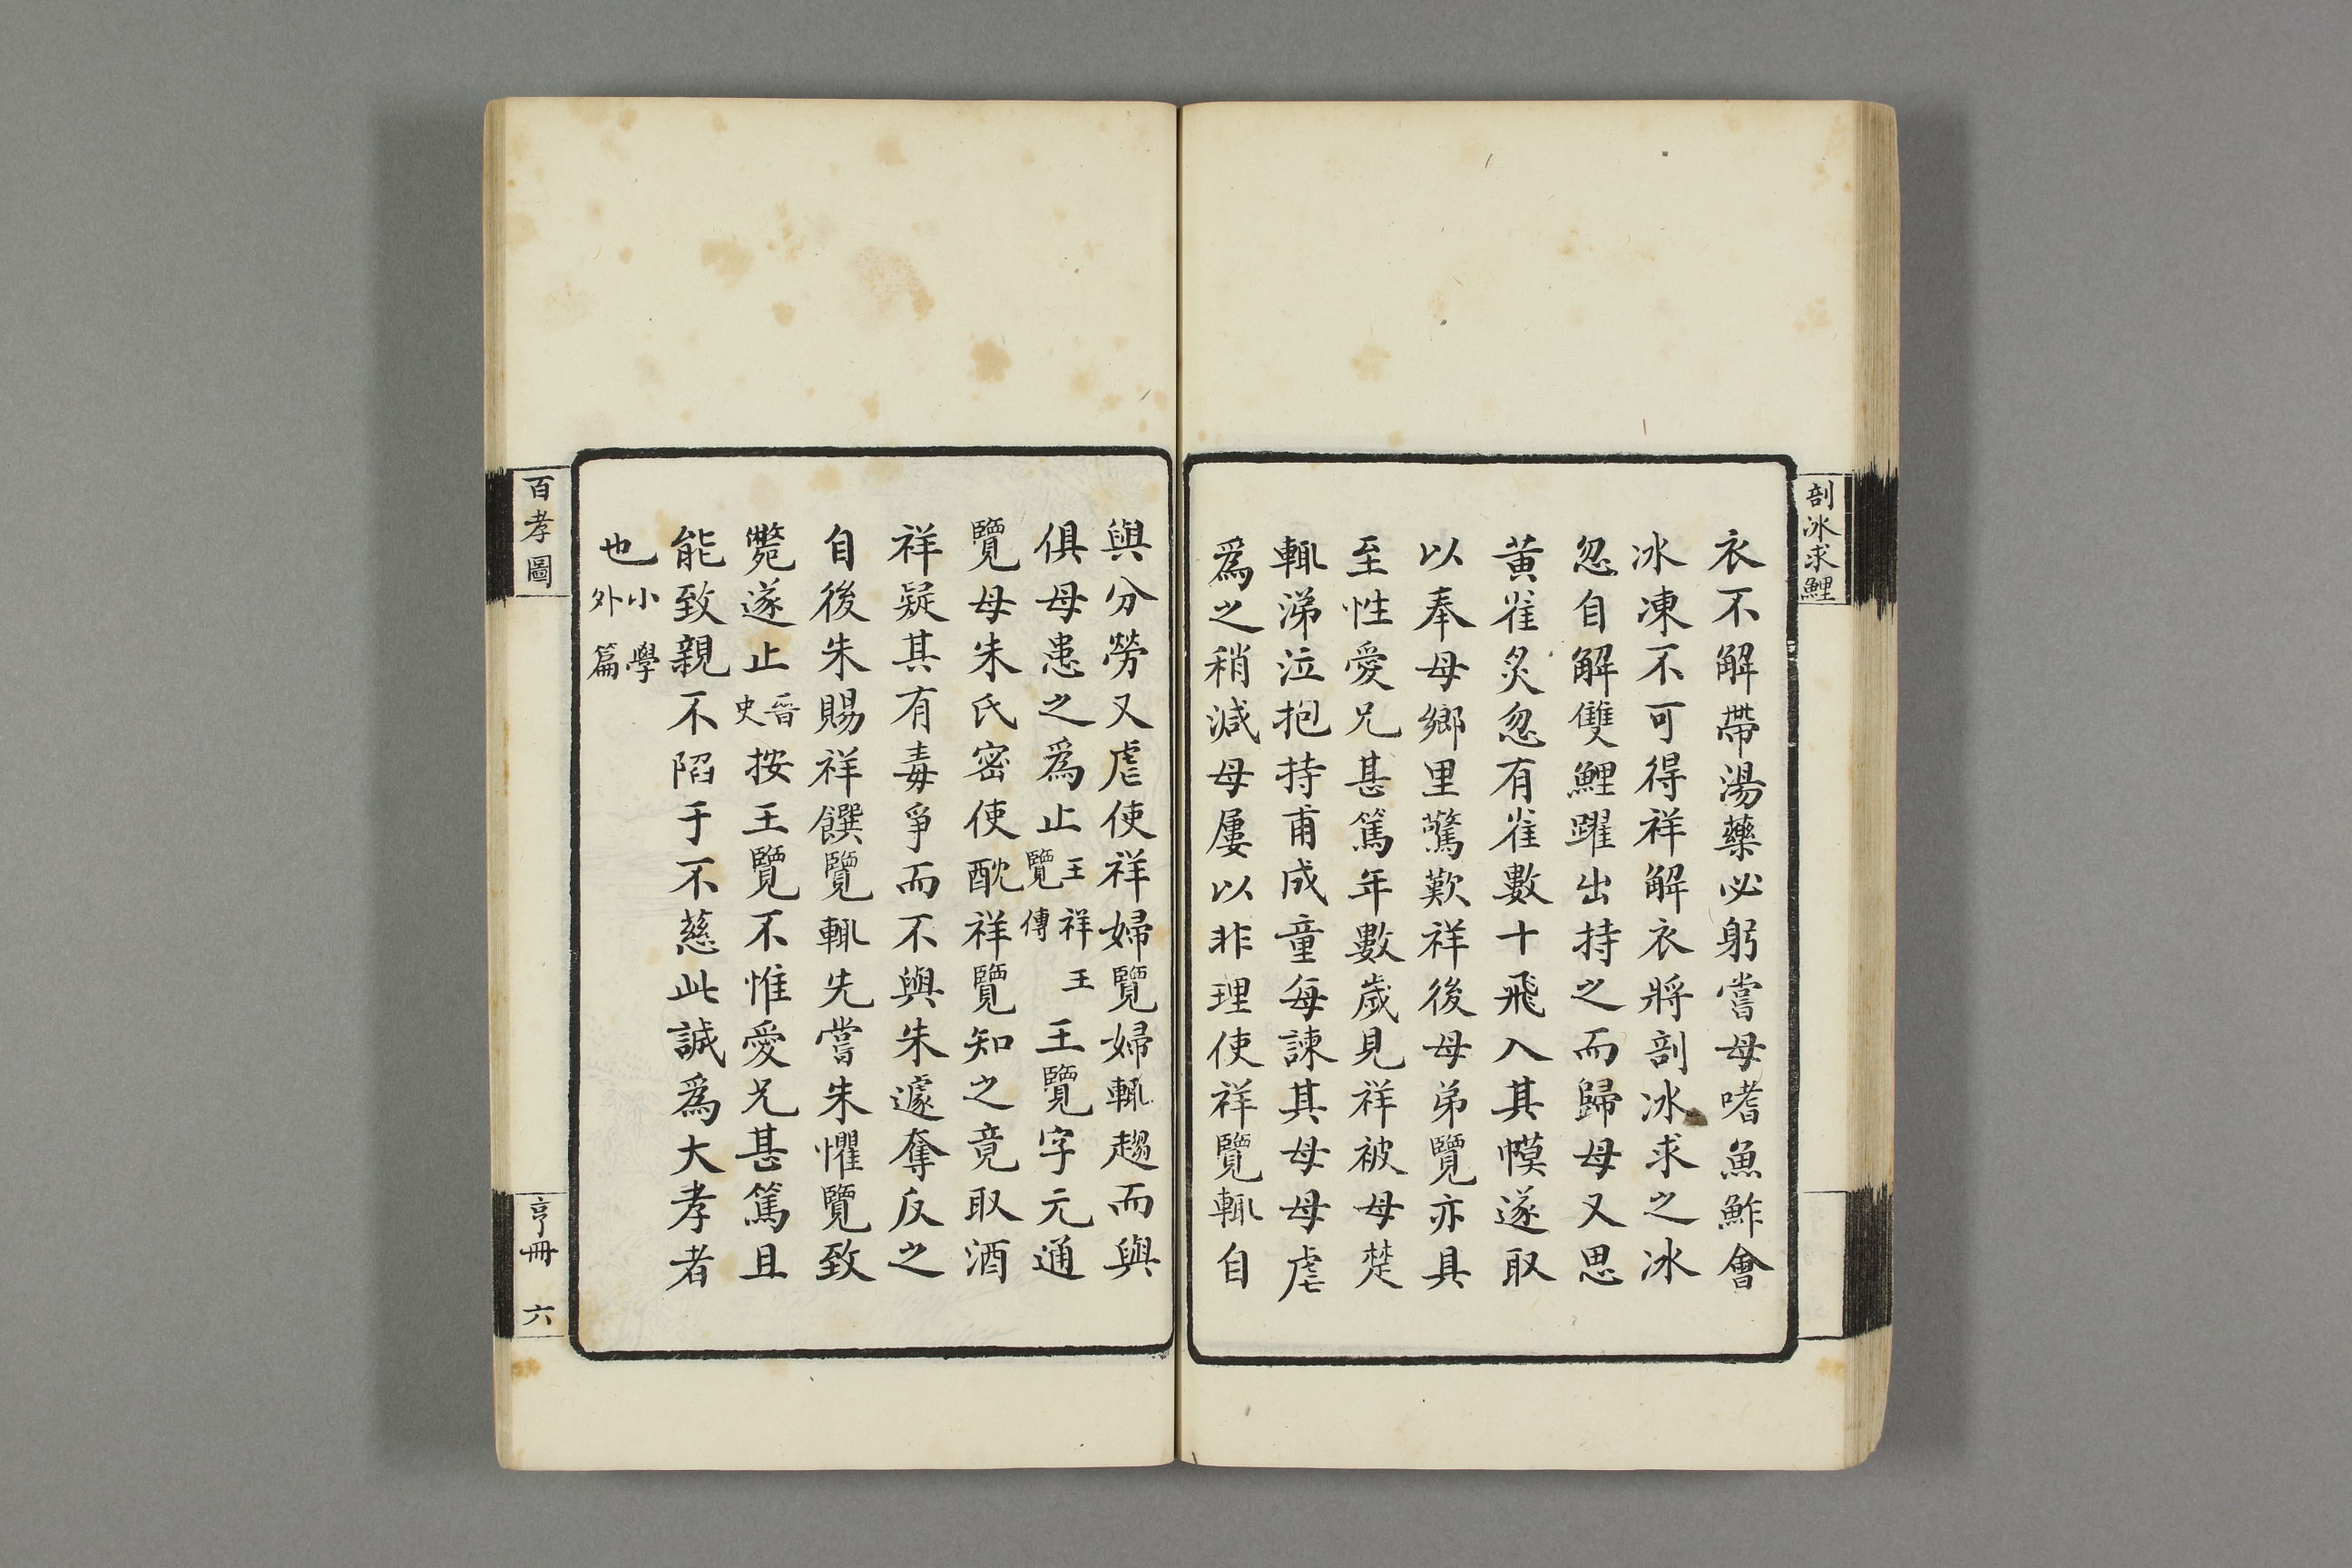 剖冰求鯉
衣不解帶湯藥必躬嘗母嗜魚鮓會
冰凍不可得祥解衣將剖冰求之冰
忽自解雙鯉躍出持之而歸母又思
黃雀炙忽有雀數十飛入其幙遂取
以奉母鄉里驚歎祥後母弟覽亦具
至性愛兄甚篤年數歲見祥被母楚
輒涕泣抱持甫成童每諫其母母虐
爲之稍減母屢以非理使祥覽輒自
與分勞又虐使祥婦覽婦輒趨而與
俱母患之爲止王祥王覽傳王覽字元通
覽母朱氏密使酖祥覽知之竟取酒
祥疑其有毒爭而不與朱遽奪反之
自後朱賜祥饌覽輒先嘗朱懼覽致
斃遂止晉史按王覽不惟愛兄甚篤且
能致親不陷于不慈此誠爲大孝者
也小學外篇
百孝圖
亨冊 六